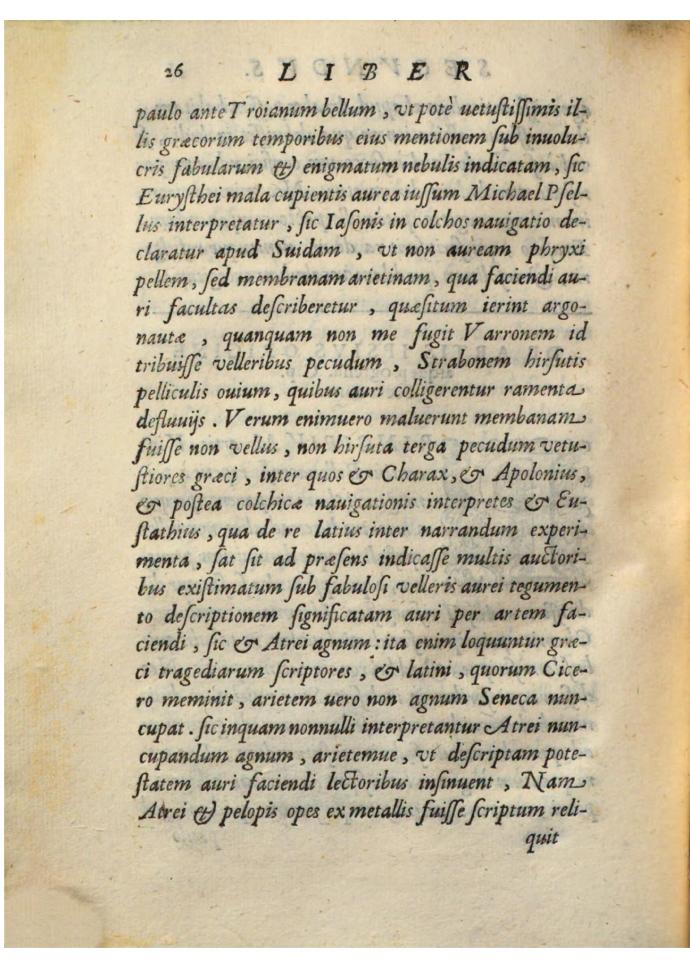 26 LIBER
paulo ante Troianum bellum , vt potè uetuſtiſſimis il-
lis græcorum temporibus eius mentionem ſub inuolu-
cris fabularum & enigmatum nebulis indicatam , ſic
Euryſthei mala cupientis aurea iuſſum Michael Pſel-
lus interpretatur , ſic Iaſonis in colchos nauigatio de-
claratur apud Suidam , vt non auream phryxi
pellem , ſed membranam arietinam , qua faciendi au-
ri facultas deſcriberetur , quæſitum ierint argo-
nautæ , quanquam non me fugit Varronem id
tribuiſſe velleribus pecudum , Strabonem hirſutis
pelliculis ouium , quibus auri colligerentur ramenta
defluuijs . Verum enimuero maluerunt membanam
fuiſſe non vellus , non hirſuta terga pecudum vetu-
ſtiores græci , inter quos & Charax , & Apolonius ,
& poſtea colchicæ nauigationis interpretes & Eu-
ſtathius , qua de re latius inter narrandum experi-
menta , ſat ſit ad præſens indicaſſe multis auctori-
bus exiſtimatum ſub fabuloſi velleris aurei tegumen-
to deſcriptionem ſignificatam auri per artem fa-
ciendi , ſic & Atrei agnum : ita enim loquuntur græ-
ci tragediarum ſcriptores , & latini , quorum Cice-
ro meminit , arietem uero non agnum Seneca nun-
cupat . ſic inquam nonnulli interpretantur Atrei nun-
cupandum agnum , arietemue , vt deſcriptam pote-
ſtatem auri faciendi lectoribus inſinuent , Nam
Atrei & pelopis opes ex metallis fuiſſe ſcriptum reli-
quit